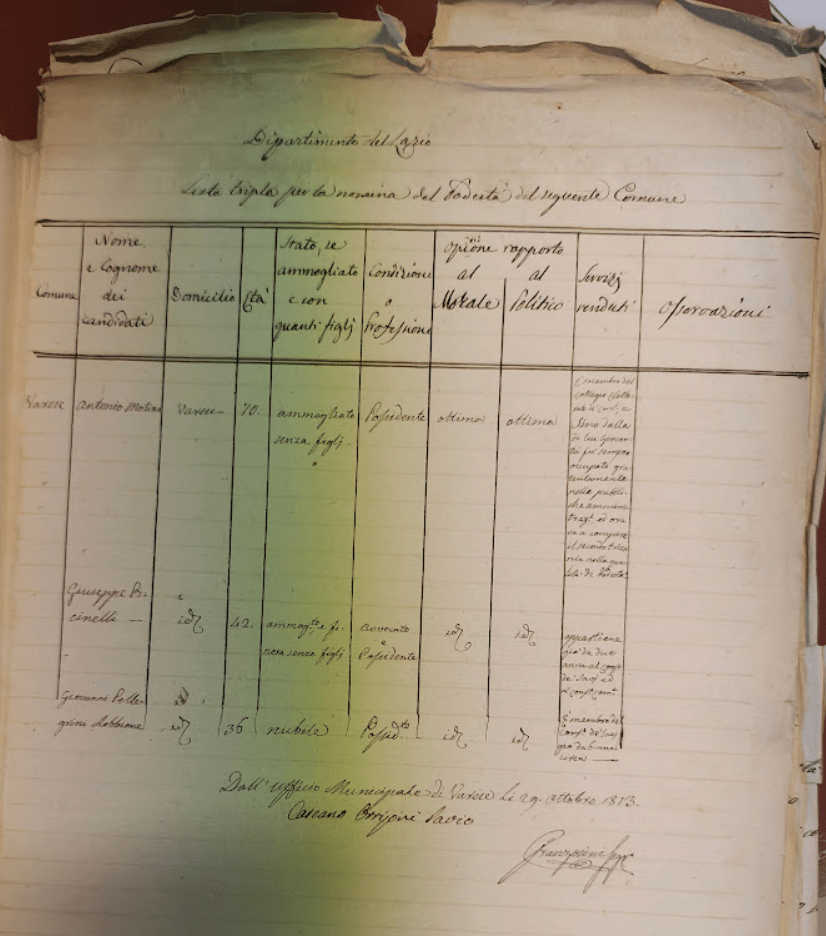 Dipartimento del Lario
Lista tripla per la nomina del Podestà del seguente Comune
Comune
Nome,
e Cognome
dei
candidati
Domicilio
Età
Stato, se
ammogliato
e con
quanti figlj
Condizione
o
Professione
opinione rapporto
al
Morale
al
Politico
Servizj
renduti
Osservazioni
Varese
Antonio Molina
Varese
70.
ammogliato
senza figlj
Possidente
ottima
ottima
È membro del
collegio
e
sino dalla
di lui gioven-
tù fu sempre
occupato gra-
tuitamente
nelle pubbli-
che ammini-
ed ora
va a compiere
il secondo trien-
nio nella qua-
lità di Podestà
Giuseppe Bi-
cinelli —
id.
42.
ammog.to e fi-
nora senza figlj
avvocato
e
Possidente
id.
id.
appartiene
già da due
anni al
de' Savj ed
al
Giovanni Pelle-
grini Robbione
id.
36
nubile
Possid.te
id.
id.
È membro del
de' Sav
già da
Dall' Ufficio Municipale di Varese li 29. Ottobre 1813.
Orrigoni Savio